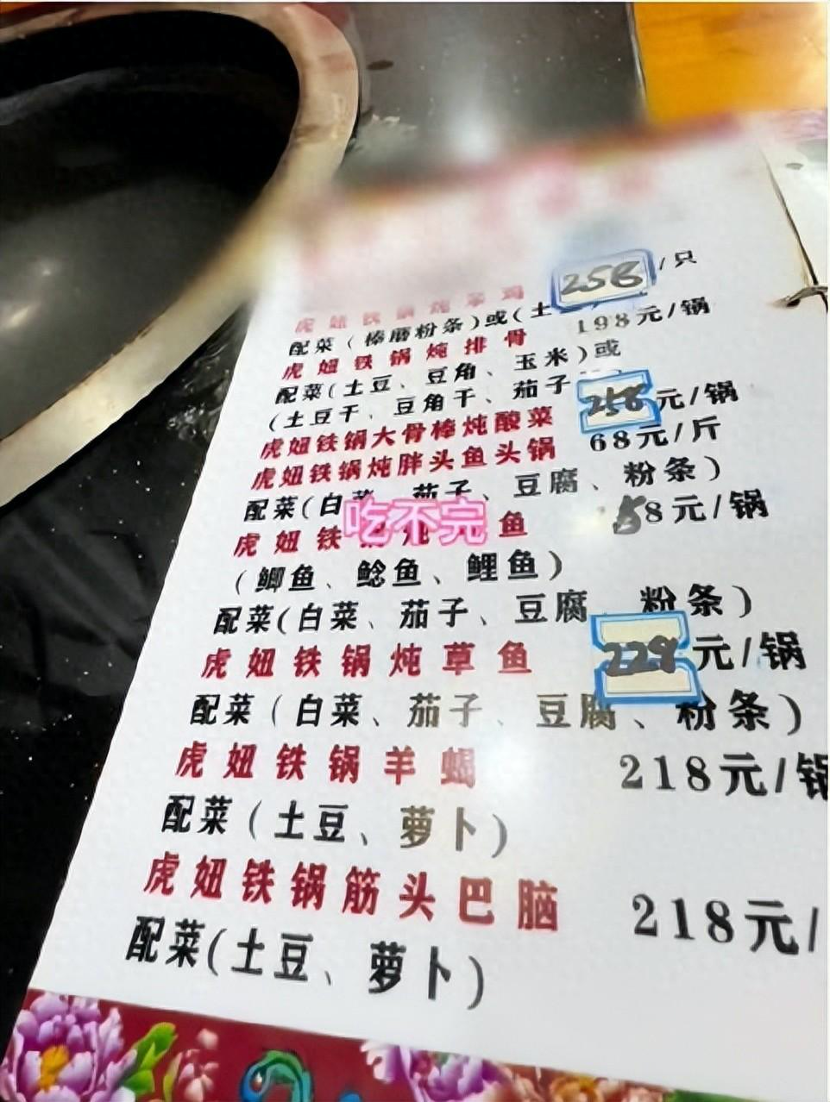 虎妞铁锅炖笨鸡 258/只
配菜(榛蘑粉条)或(土
虎妞铁锅炖排骨 198元/锅
配菜(土豆、豆角、玉米)或
(土豆干、豆角干、茄子
虎妞铁锅大骨棒炖酸菜 258元/锅
虎妞铁锅炖胖头鱼头锅 68元/斤
配菜(白菜、茄子、豆腐、粉条)
吃不完
虎妞铁锅炖 鱼 58元/锅
(鲫鱼、鲶鱼、鲤鱼)
配菜(白菜、茄子、豆腐 粉条)
虎妞铁锅炖草鱼 229元/锅
配菜(白菜、茄子、豆腐、粉条)
虎妞铁锅羊蝎 218元/锅
配菜(土豆、萝卜)
虎妞铁锅筋头巴脑 218元/
配菜(土豆、萝卜)